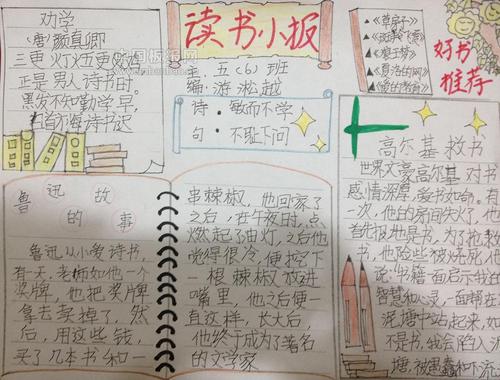 劝学
(唐)颜真卿
三更灯火五更鸡
正是男人读书时。
黑发不知勤学早,
白首方悔读书迟
读书小报
主:五(6)班
编:游淞越
诗:敏而不学
句:不耻下问
▲《草房子》
▲《狼王梦》
▲《夏洛的网》
▲《爱的教育》
好书
推荐
鲁迅故
的事
鲁迅从小爱读书,
有一天,老师如他一个
奖牌,他把奖牌
拿去卖掉了,然
后,用这些钱,
买了几本书和一
串辣椒,他回家了
之后,在午夜时,点
燃起了油灯,之后他
觉得很冷,便挖下
一根辣椒放进
嘴里,他之后便一
直这样,长大后,
他终于成为了著名
的文学家
高尔基救书
世界文豪高尔基对书
感情深厚,爱书如命。有
一次,他的房间失火了,他
首先抱地是书,为了抢救
书,他险些被烧死,他
说:书籍一面启示我的
智慧和心灵,一面帮在
泥塘中站起来,如
不是书,我会陷入泥
塘,被愚蠢和下流